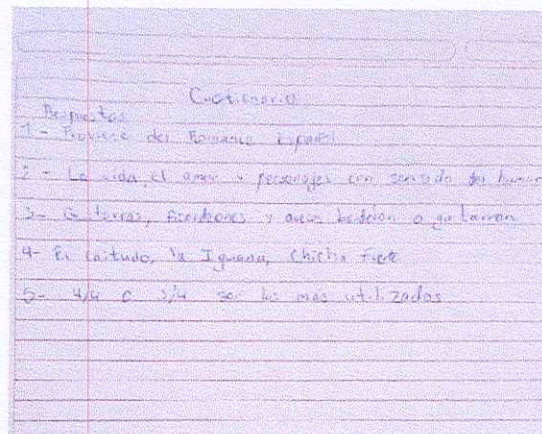 Cuestionario
Respuestas
1- Proviene del Romance Español
2- La vida, el amor y personajes con sentido del humor
3- Guitarras, Acordeones y o guitarron
4- El coitudo, la Iguana, Chicha Fuerte
5- 4/4 o 3/4 son los más utilizados